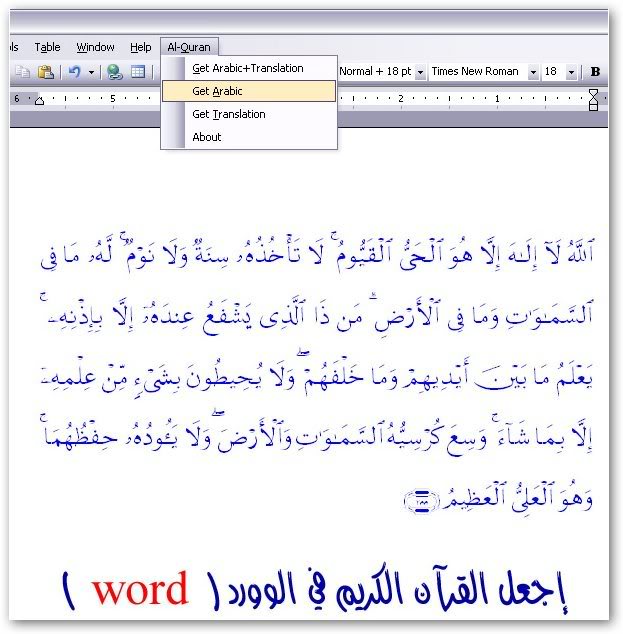 ols Table Window Help Al-Quran
Get Arabic+Translation
Normal + 18 pt Times New Roman 18 B
Get Arabic
6 5 2 1
Get Translation
About
ٱللَّهُ لَآ إِلَـٰهَ إِلَّا هُوَ ٱلْحَىُّ ٱلْقَيُّومُ ۚ لَا تَأْخُذُهُۥ سِنَةٌۭ وَلَا نَوْمٌۭ ۚ لَّهُۥ مَا فِى
ٱلسَّمَـٰوَٰتِ وَمَا فِى ٱلْأَرْضِ ۗ مَن ذَا ٱلَّذِى يَشْفَعُ عِندَهُۥٓ إِلَّا بِإِذْنِهِۦ ۚ
يَعْلَمُ مَا بَيْنَ أَيْدِيهِمْ وَمَا خَلْفَهُمْ ۖ وَلَا يُحِيطُونَ بِشَىْءٍۢ مِّنْ عِلْمِهِۦٓ
إِلَّا بِمَا شَآءَ ۚ وَسِعَ كُرْسِيُّهُ ٱلسَّمَـٰوَٰتِ وَٱلْأَرْضَ ۖ وَلَا يَـُٔودُهُۥ حِفْظُهُمَا ۚ
وَهُوَ ٱلْعَلِىُّ ٱلْعَظِيمُ ﴿٢٥٥﴾
إجعل القرآن الكريم في الوورد ( word )